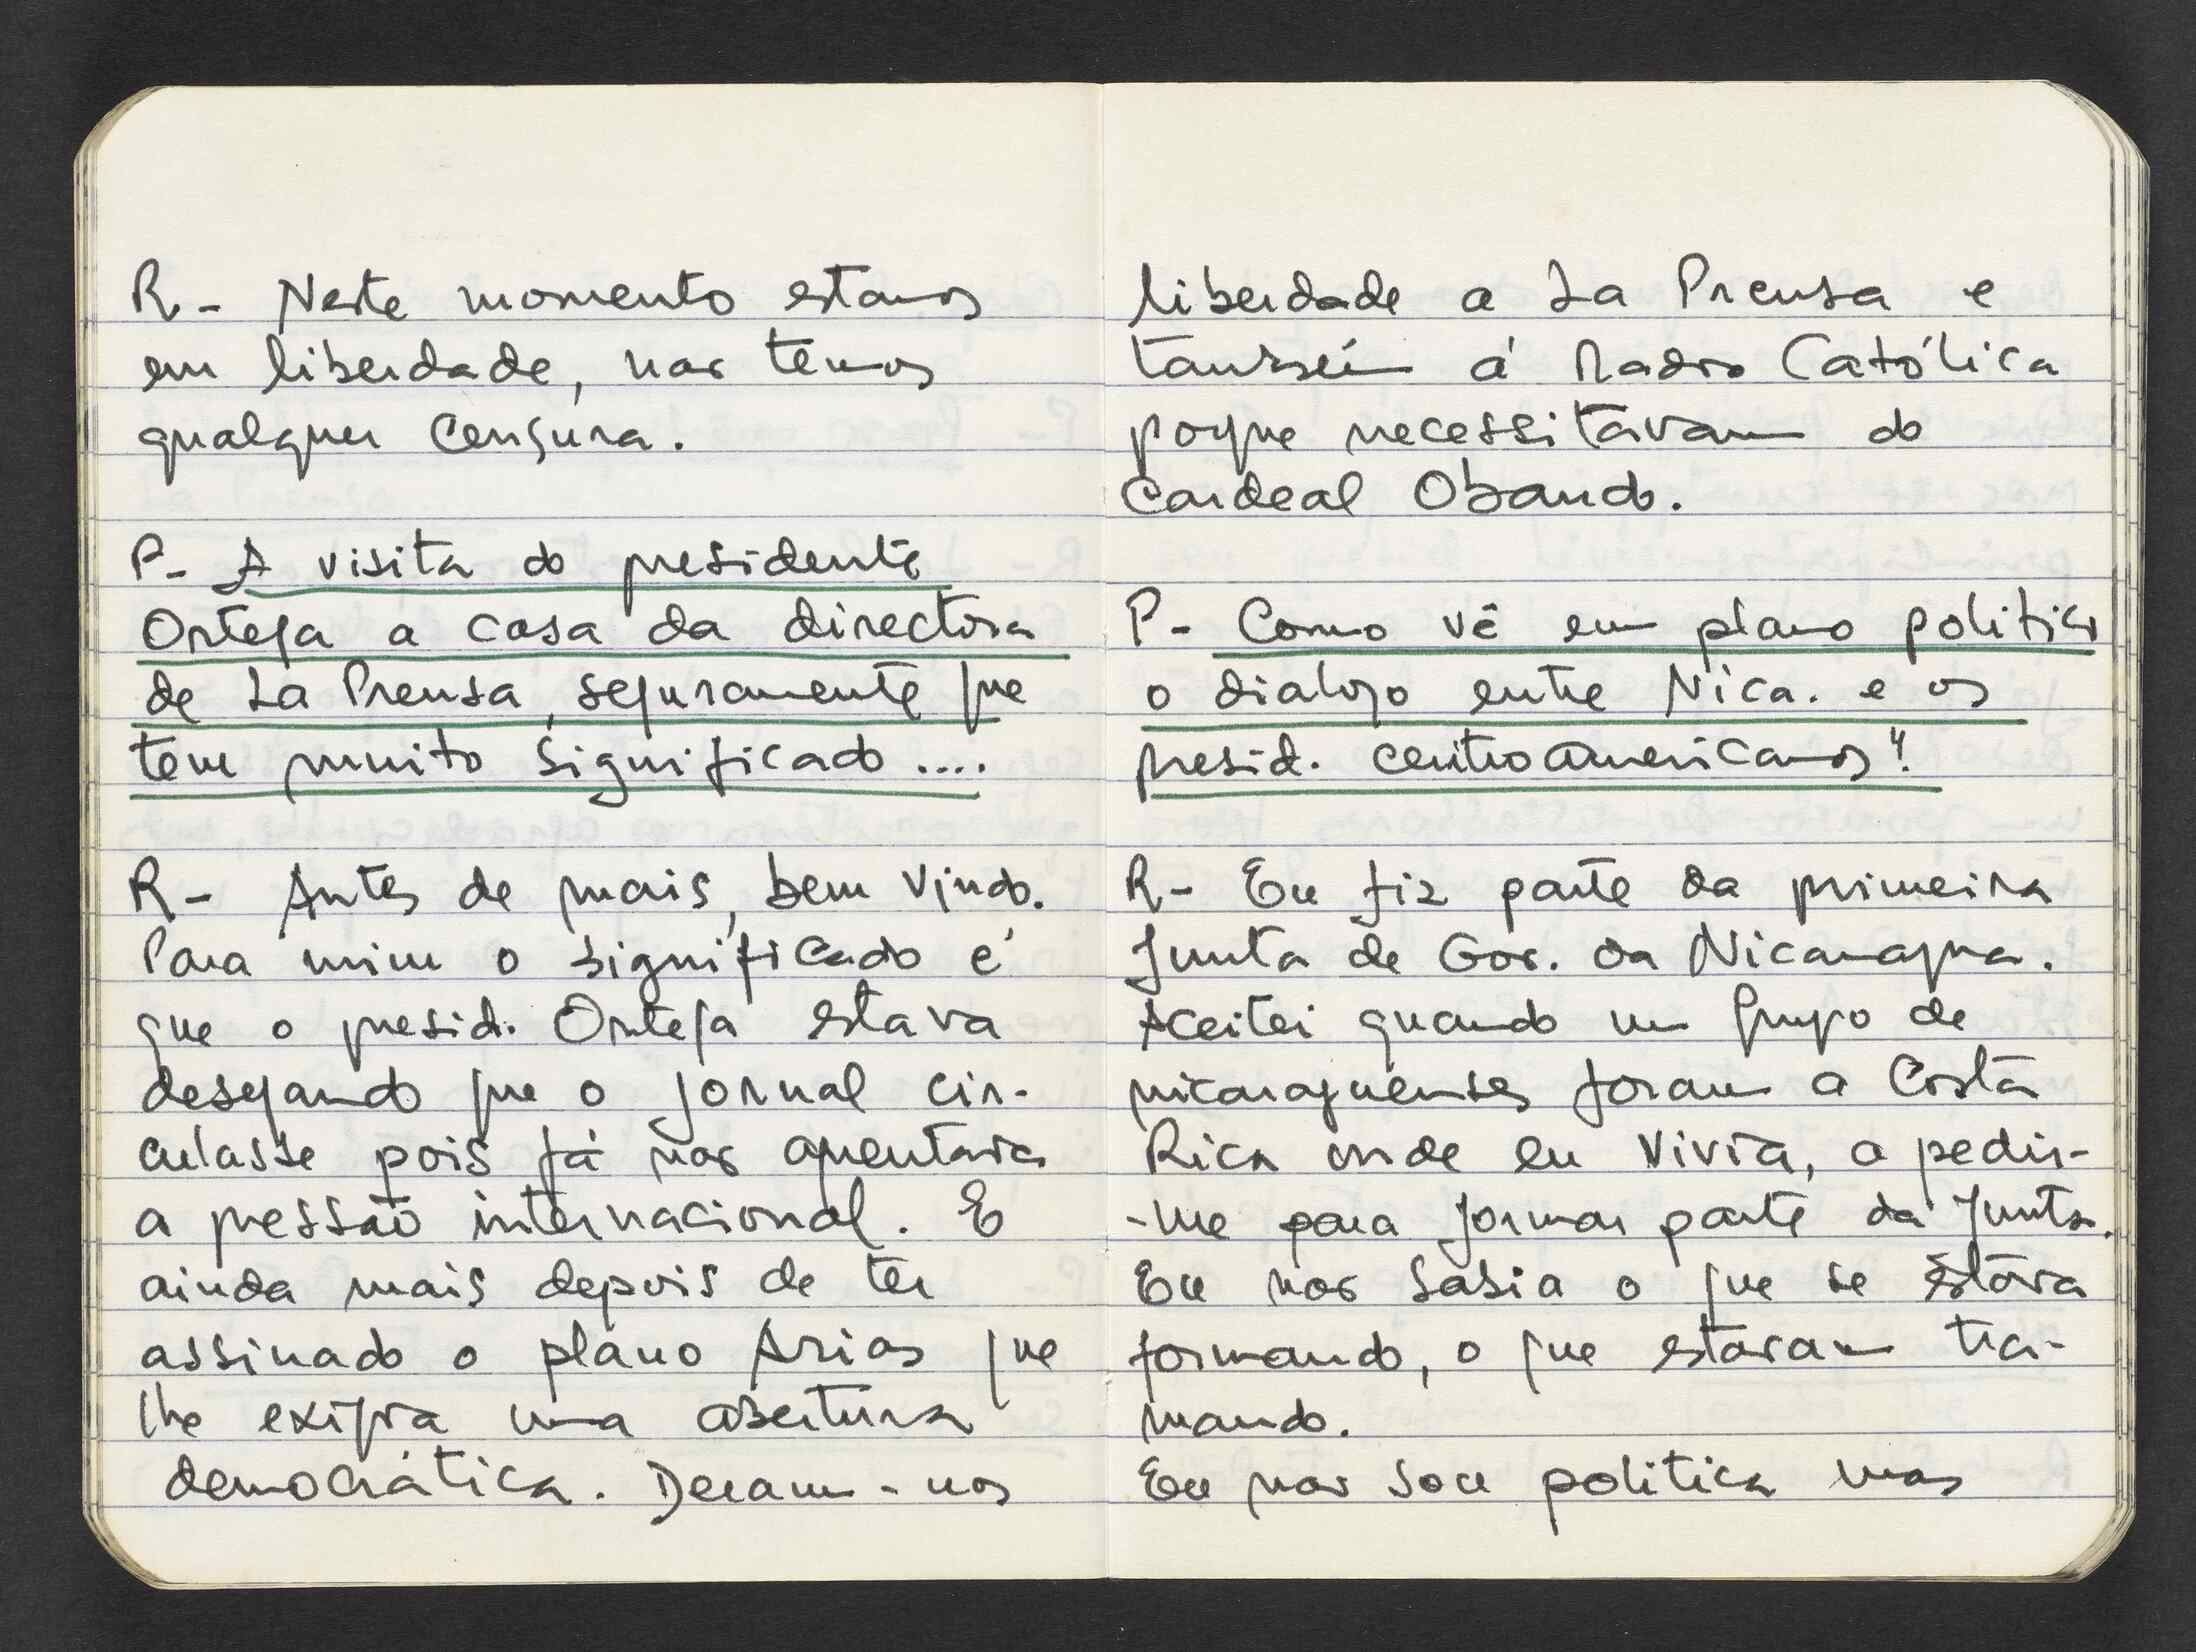 R - Neste momento estamos
em liberdade, nao temos
qualquer censura.
P - A visita do presidente
Ortega a casa da directora
de La Prensa, seguramente que
tem muito significado ....
R - Antes de mais, bem vindo.
Para mim o significado é
que o presid. Ortega estava
desejando que o jornal cir-
culasse pois já nao aguentava
a pressão internacional. E
ainda mais depois de ter
assinado o plano Arias que
lhe exigia uma abertura
democrática. Deram-nos
liberdade a La Prensa e
também á Radio Católica
porque necessitavam do
Cardeal Obando.
P - Como vê em plano politico
o dialogo entre Nica. e os
presid. centroamericanos?
R - Eu fiz parte da primeira
Junta de Gov. da Nicaragua.
Aceitei quando um grupo de
nicaraguenses foram a Costa
Rica onde eu vivia, a pedir-
-me para formar parte da Junta.
Eu nao sabia o que se estava
formando, o que estavam tra-
mando.
Eu nao sou politica mas